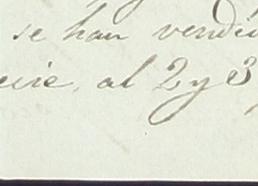 se han vendi
al 2 y 3